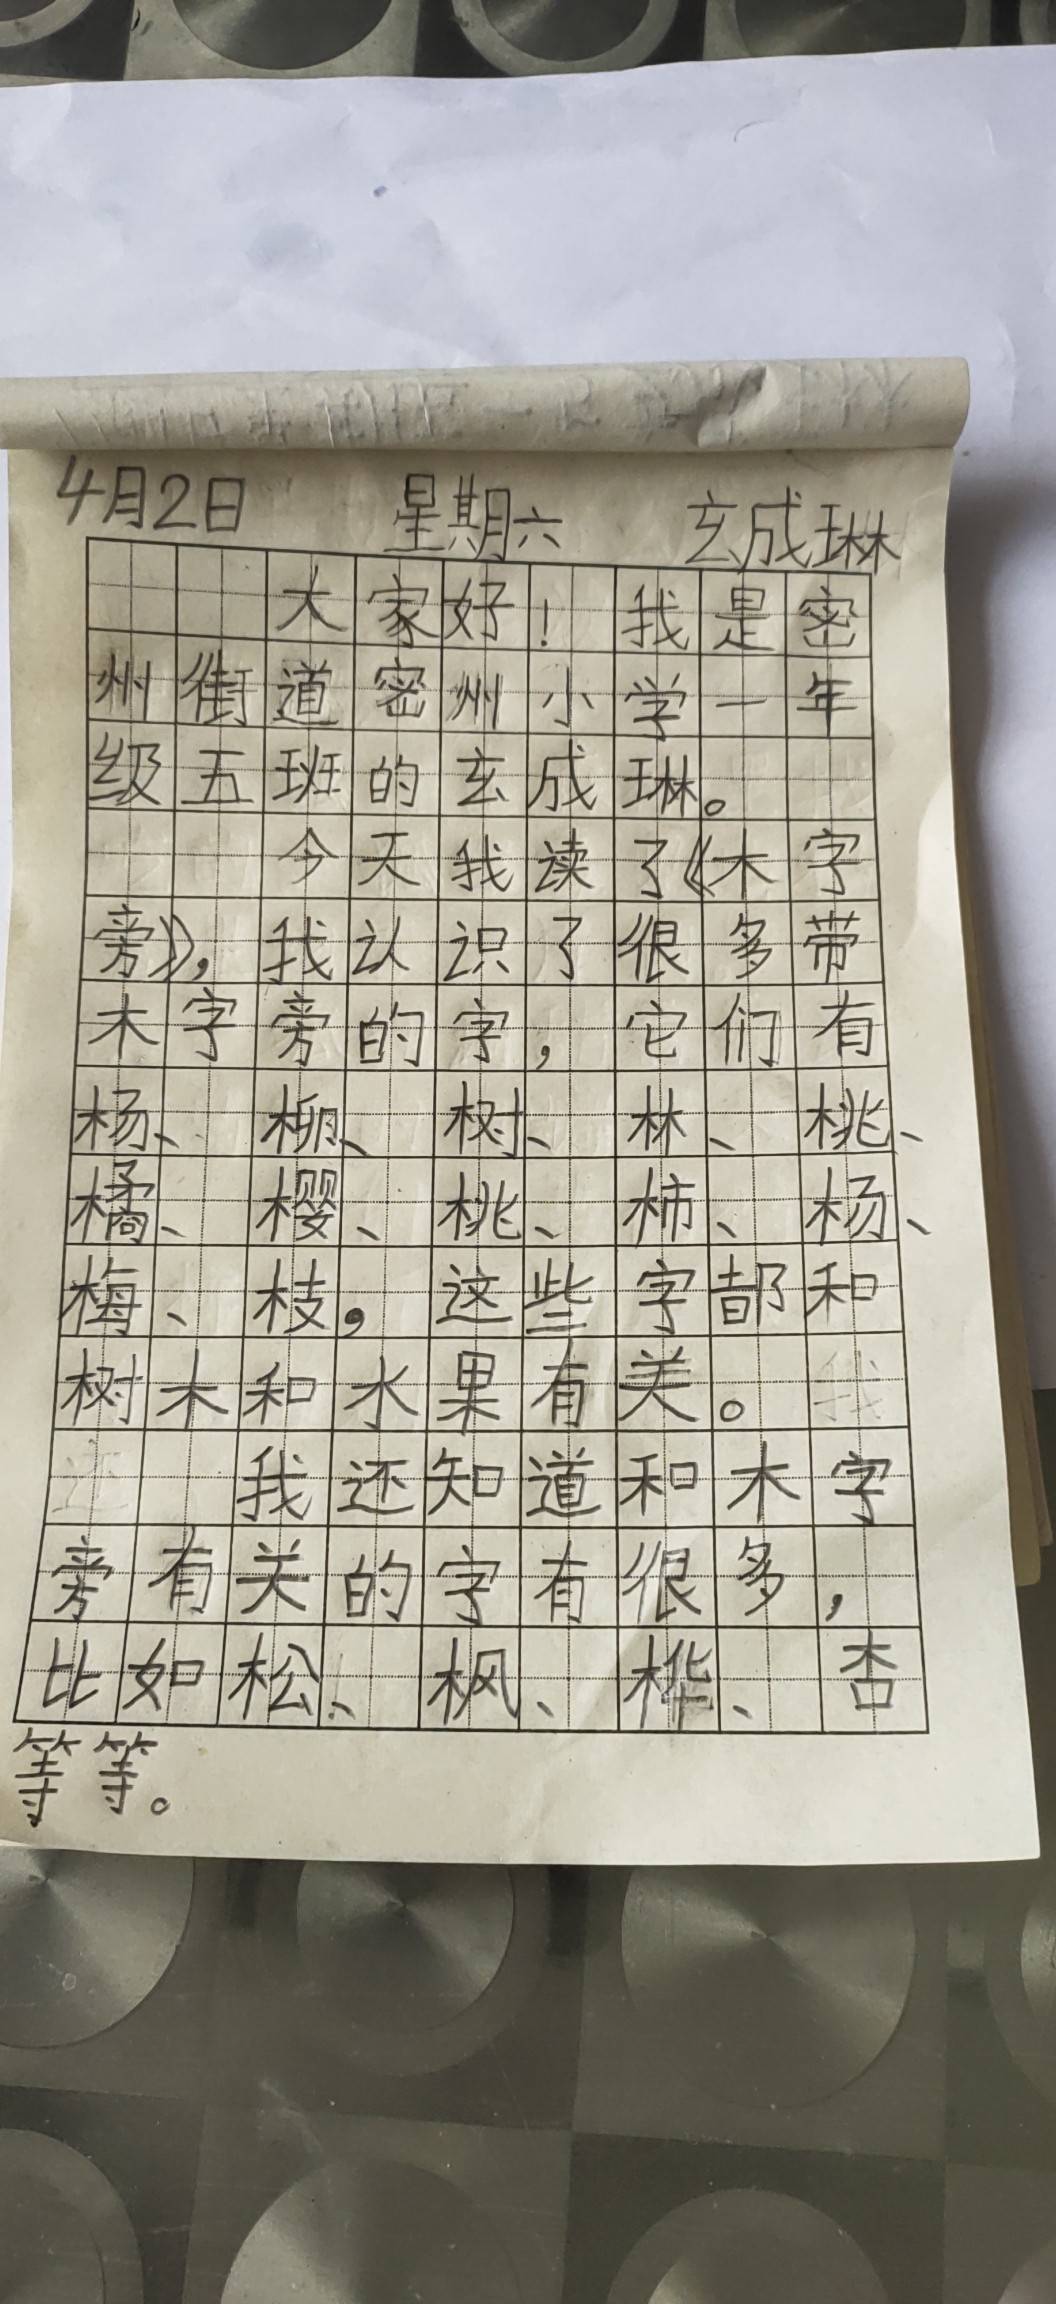 4月2日 星期六 玄成琳
大家好！我是密
州街道密州小学一年
级五班的玄成琳。
今天我读了《木字
旁》，我认识了很多带
木字旁的字，它们有
杨、柳、树、林、桃、
橘、樱、桃、柿、杨、
梅、枝，这些字都和
树木和水果有关。
我还知道和木字
旁有关的字有很多，
比如松、枫、桦、杏
等等。